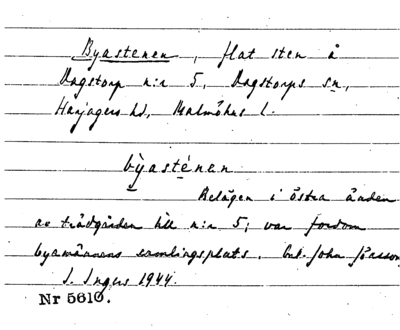 Byastenen, flat sten å
Dagstorp n:r 5, Dagstorps sn,
Harjagers hd, Malmöhus l.
byasténen
Belägen i östra änden
av trädgården till n:r 5; var fordom
byamännens samlingsplats. Enl. John Jönsson,
I. Ingers 1944.
Nr 5610.